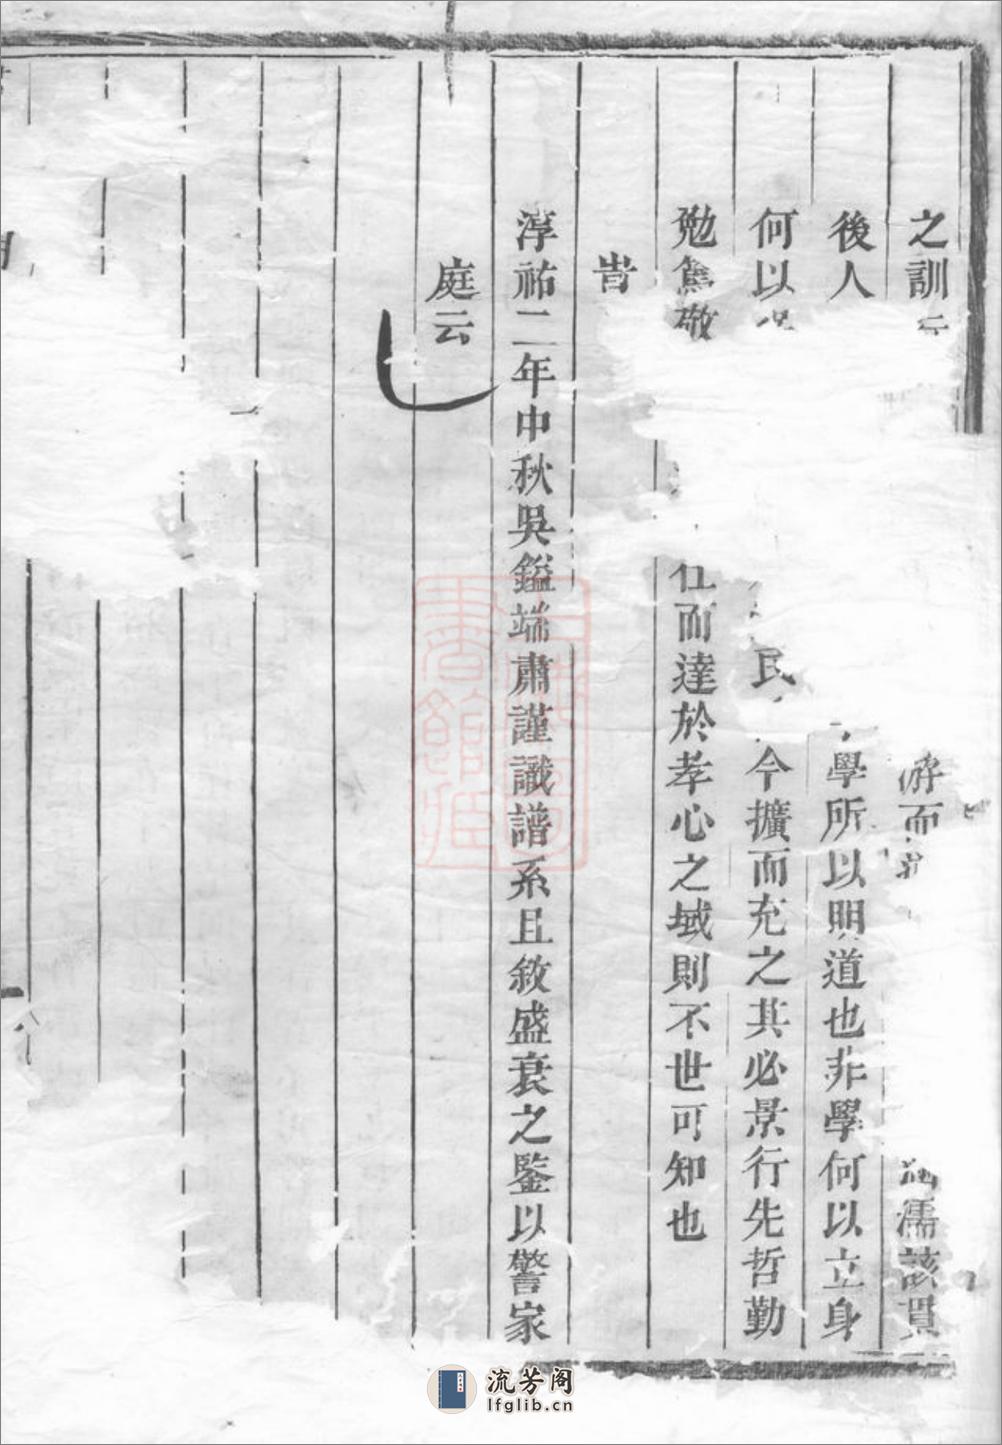 之訓
游而
濡該貫
後人
學所以明道也非學何以立身
何以
民
今擴而充之其必景行先哲勤
勉雋敬
仕而達於孝心之域則不世可知也
旹
淳祐二年中秋吳鎰端肅謹識譜系且敘盛衰之鑒以警家
庭云
流芳阁
lfglib.cn